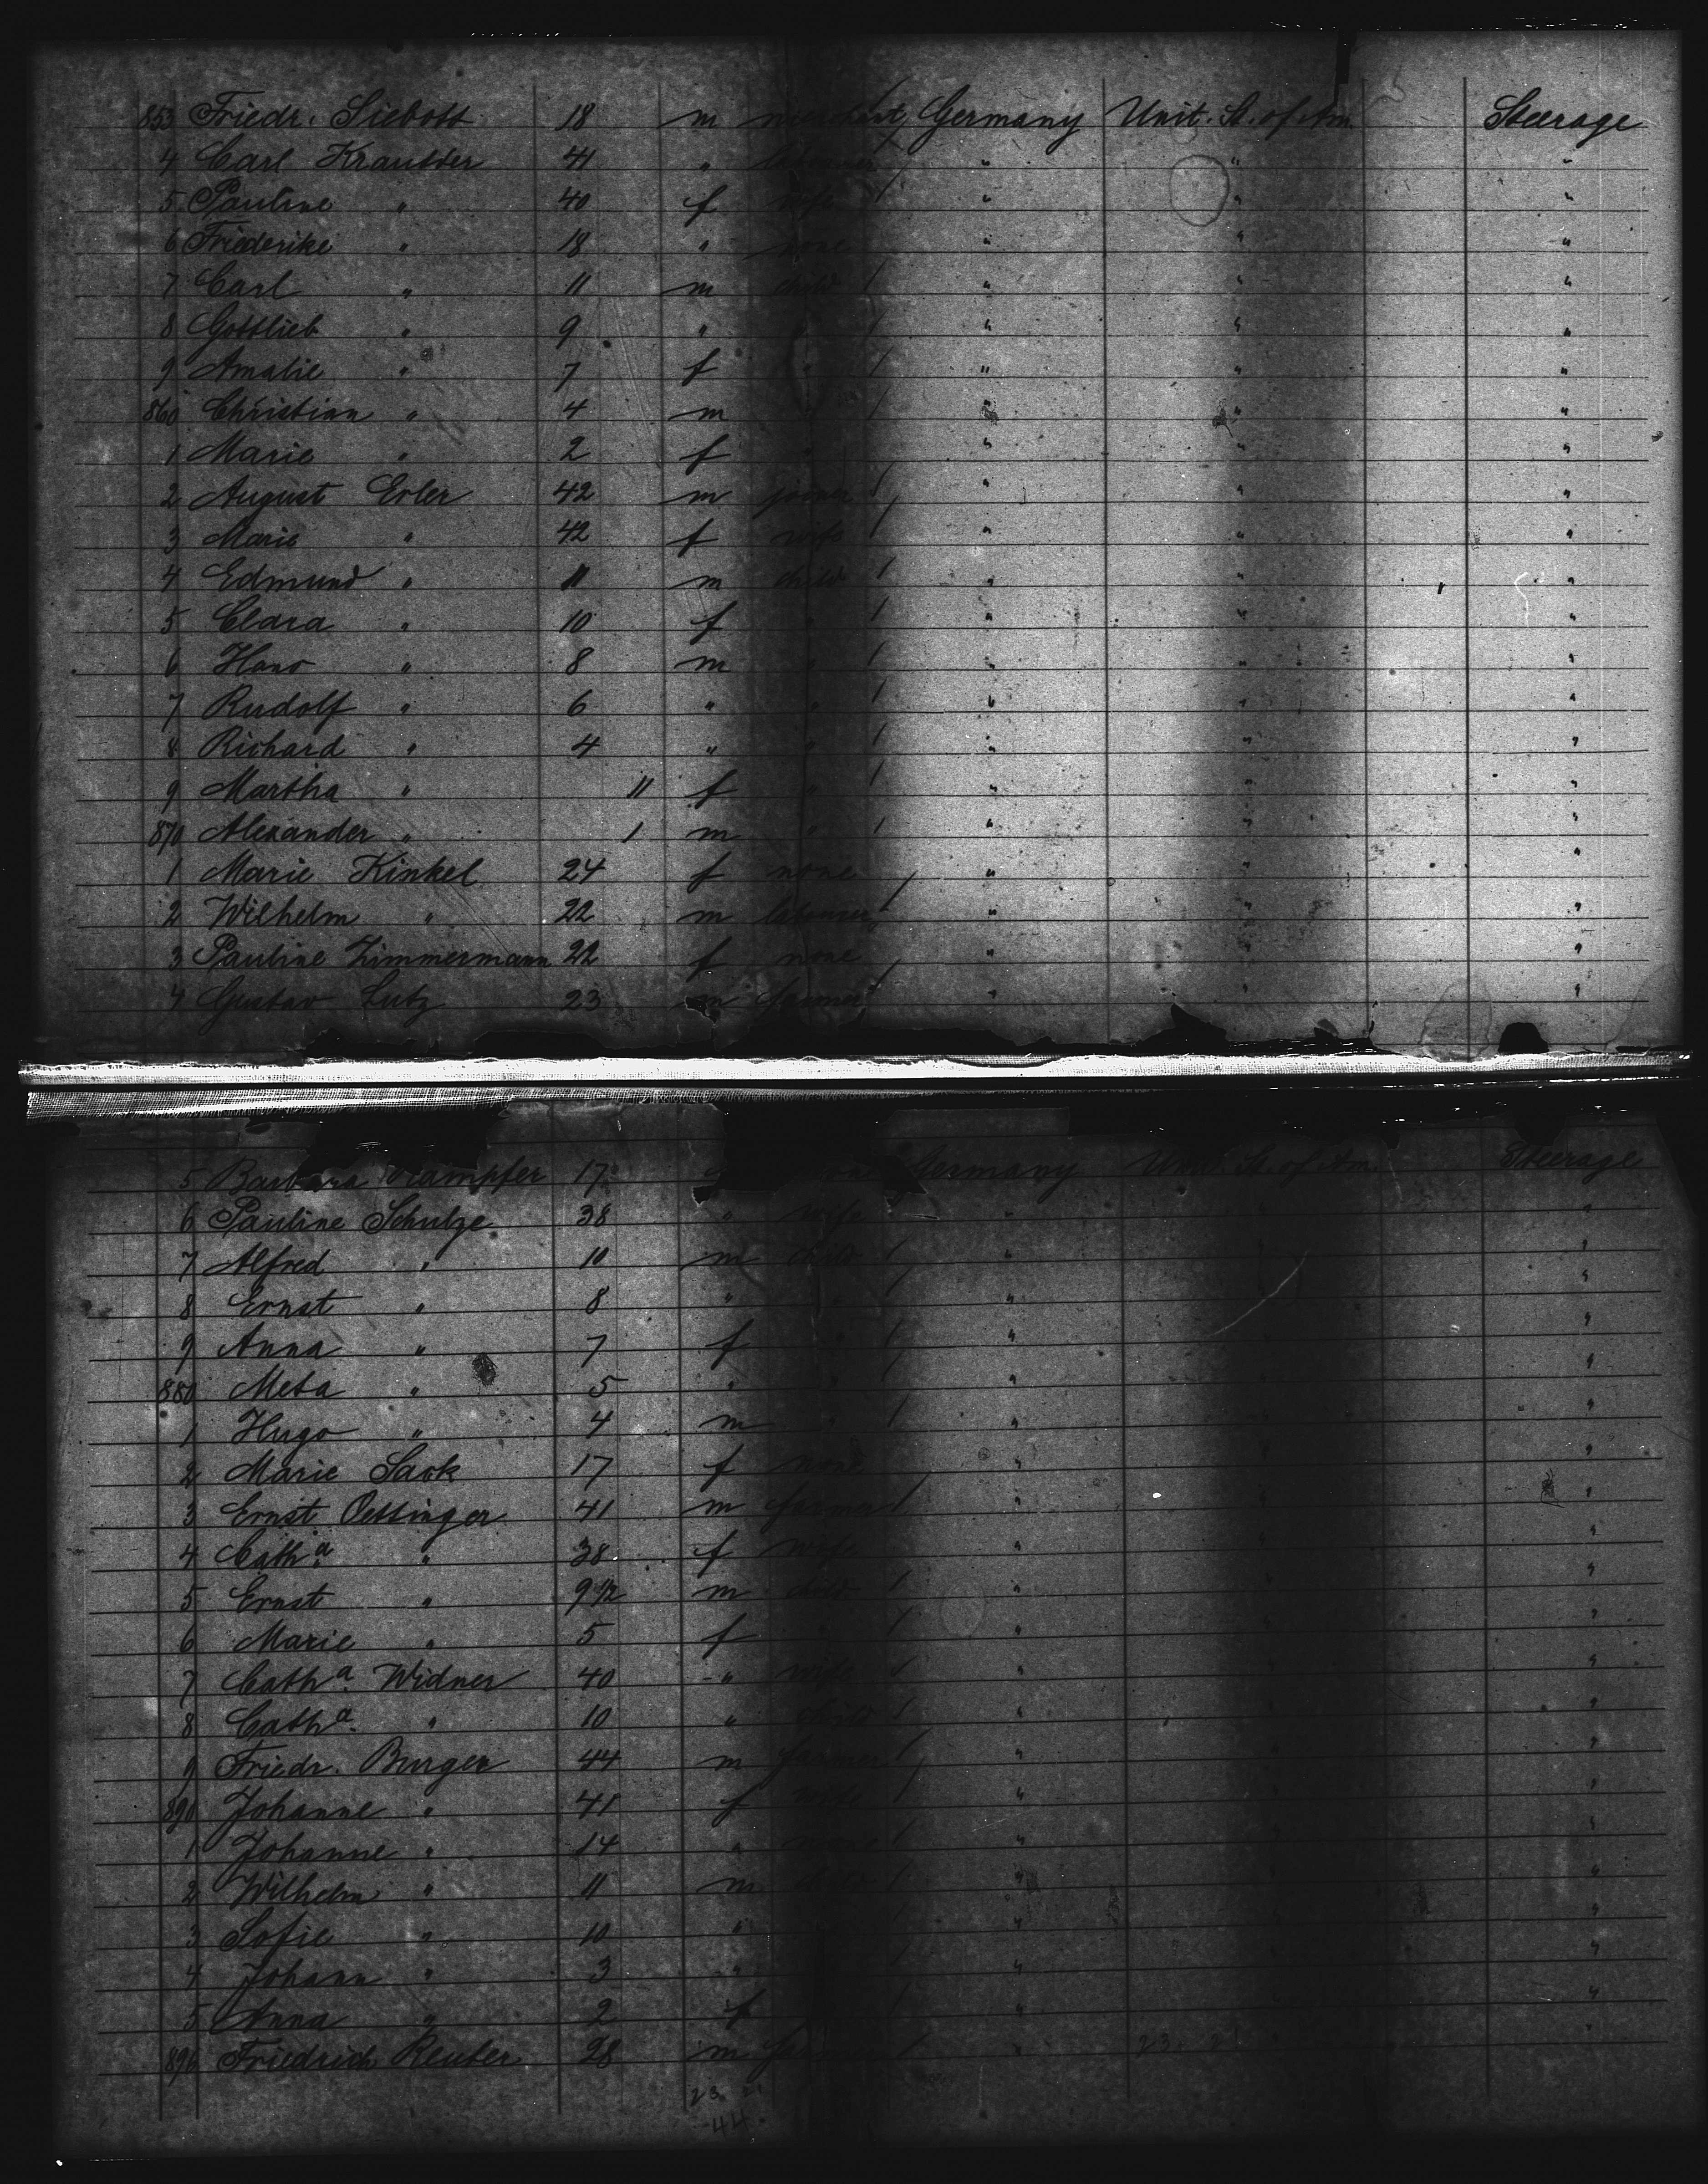 853 Friedr. Siebott 18 m merchant Germany Unit. St. of Am. Steerage
4 Carl Krautter 41 " labourer " " "
5 Pauline " 40 f wife " " "
6 Friederike " 18 " none " " "
7 Carl " 11 m child " " "
8 Gottlieb " 9 " " " " "
9 Amalie " 7 f " " " "
860 Christian " 4 m " " " "
1 Marie " 2 f " " " "
2 August Erler 42 m joiner " " "
3 Marie " 42 f wife " " "
4 Edmund " 11 m child " " "
5 Clara " 10 f " " " "
6 Hans " 8 m " " " "
7 Rudolf " 6 " " " " "
8 Richard " 4 " " " " "
9 Martha " 11 f " " " "
870 Alexander " 1 m " " " "
1 Marie Kinkel 24 f none " " "
2 Wilhelm " 22 m labourer " " "
3 Pauline Zimmermann 22 f none " " "
4 Gustav Lutz 23 m farmer " " "
5 Barbara 17 Germany Unit. St. of Am. Steerage
6 Pauline Schulze 38 " wife " "
7 Alfred " 10 m child " "
8 Ernst " 8 " " " "
9 Anna " 7 f " " "
880 Meta " 5 " " " "
1 Hugo " 4 m " " "
2 Marie Sack 17 f none " "
3 Ernst Oettinger 41 m farmer " "
4 Cath.a " 38 f wife " "
5 Ernst " 9 1/2 m child " "
6 Marie " 5 f " " "
7 Cath.a Widner 40 " wife " "
8 Cath.a " 10 " child " "
9 Friedr. Burger 44 m farmer " "
890 Johanne " 41 f wife " "
1 Johanne " 14 " none " "
2 Wilhelm " 11 m child " "
3 Sofie " 10 " " "
4 Johann " 3 " " "
5 Anna " 2 f " "
896 Friedrich Reuter 28 m farmer " "
23. 21
44.